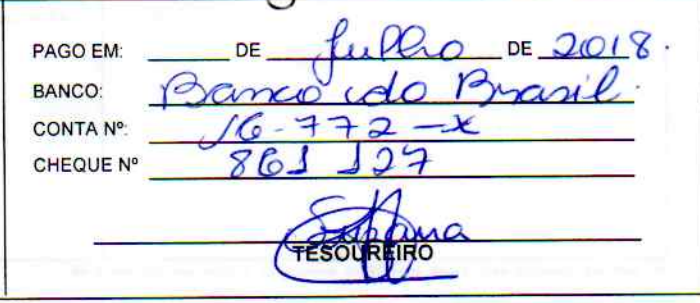 PAGO EM: DE Julho DE 2018.
BANCO: Banco do Brasil.
CONTA Nº: 16-772-x
CHEQUE Nº 861 127
TESOUREIRO